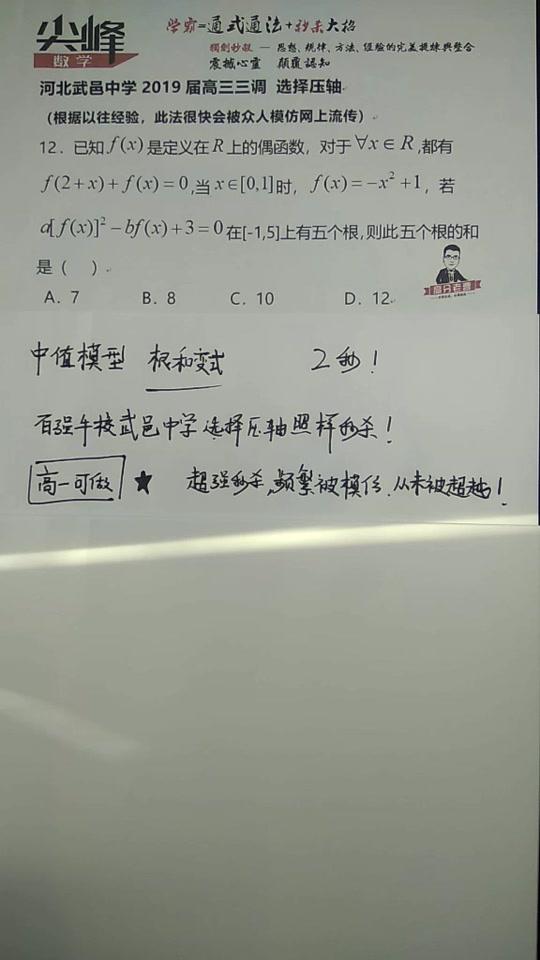 尖峰
数学
学霸=通式通法+秒杀大招
独创妙招 — 思想、规律、方法、经验的完美提炼与整合
震撼心灵 颠覆认知
河北武邑中学 2019 届高三三调 选择压轴
（根据以往经验，此法很快会被众人模仿网上流传）
12．已知 f(x) 是定义在 R 上的偶函数，对于 ∀x∈R ,都有
f(2+x)+f(x)=0 ,当 x∈[0,1] 时， f(x)=−x²+1 ，若
a[f(x)]²−bf(x)+3=0 在[-1,5]上有五个根,则此五个根的和
是（ ）.
A．7 B．8 C．10 D．12
中值模型 根和变式 2秒！
百强牛校武邑中学选择压轴照样秒杀！
高一可做 ★ 超强秒杀,频繁被模仿,从未被超越！